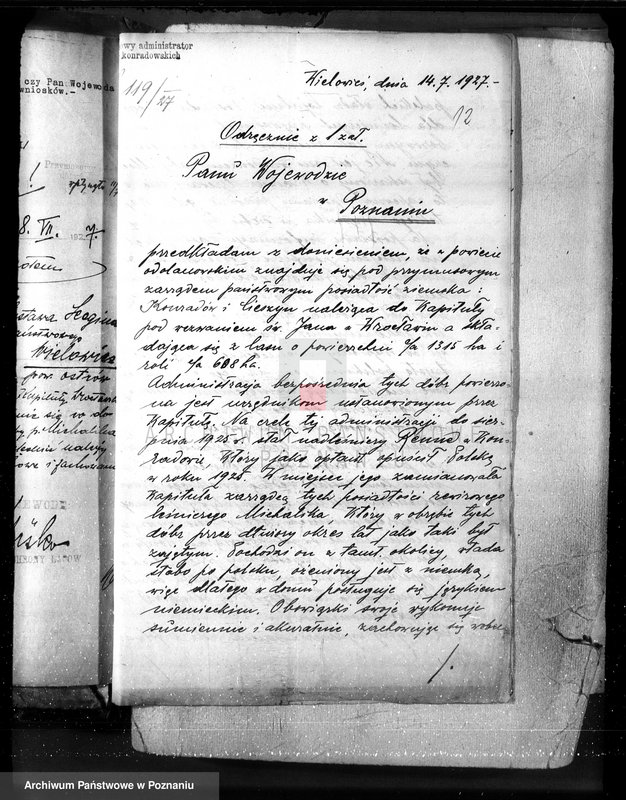 czy Pan Wojewoda
wniosków.-
!
wpłynęło
8. VII. 1927.
Wielowieś
pow. ostrów
p. Michalika
EWODĘ
OCHRONY LASÓW
owy administrator
konradowskich
119/27
Wielowieś, dnia 14.7.1927.-
12
Odręcznie z 1 zał.
Panu Wojewodzie
w Poznaniu
przedkładam z doniesieniem, że w powiecie
odolanowskim znajduje się pod przymusowym
zarządem państwowym posiadłość ziemska:
Konradów i Cieszyn należąca do Kapituły
pod wezwaniem św. Jana w Wrocławiu a skła-
dająca się z lasu o powierzchni c/a 1315 ha i
roli c/a 698 ha.
Administracja bezpośrednia tych dóbr powierzo-
na jest urzędnikom ustanowionym przez
Kapitułę. Na czele tej administracji do sier-
pnia 1925 r. stał nadleśniczy Renner w Kon-
radowie, który jako optant opuścił Polskę
w roku 1925. W miejsce jego zamianowała
Kapituła zarządcą tych posiadłości rewirowego
leśniczego Michalika, który w obrębie tych
dóbr przez dłuższy okres lat jako taki był
zajętym. Pochodzi on z tamt. okolicy, włada
słabo po polsku, ożeniony jest z niemką,
więc dlatego w domu posługuje się językiem
niemieckim. Obowiązki swoje wykonuje
sumiennie i akuratnie, zachowując się wobec
/.
Archiwum Państwowe w Poznaniu